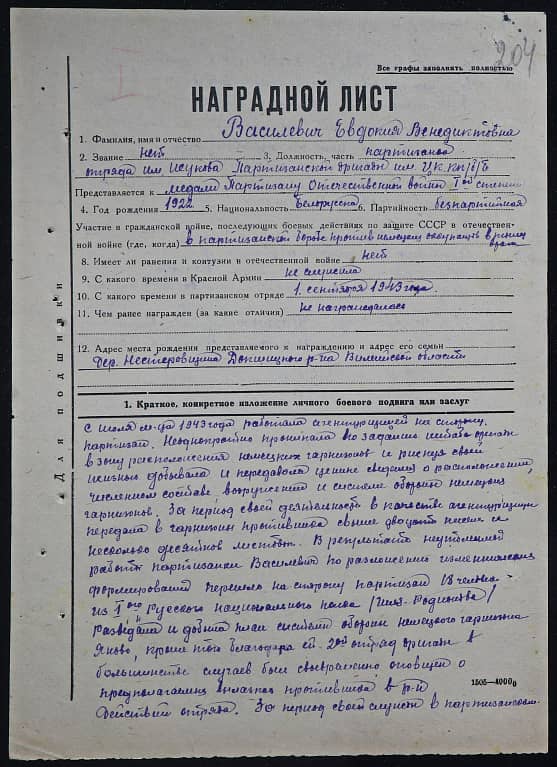 204
I
Все графы заполнять полностью
НАГРАДНОЙ ЛИСТ
1. Фамилия, имя и отчество Василевич Евдокия Венедиктовна
2. Звание нет 3. Должность, часть партизанка
отряда им. Партизанской бригады им. ЦК КП/б/Б
Представляется к медали Партизану Отечественной войны I ой степени
4. Год рождения 1922 5. Национальность Белоруска 6. Партийность безпартийная
Участие в гражданской войне, последующих боевых действиях по защите СССР в отечествен-
ной войне (где, когда) в партизанской борьбе против немецких оккупантов в тылу врага
8. Имеет ли ранения и контузии в отечественной войне нет
9. С какого времени в Красной Армии не служила
10. С какого времени в партизанском отряде 1. сентября 1943 года
11. Чем ранее награжден (за какие отличия) не награждалась
12. Адрес места рождения представляемого к награждению и адрес его семьи
дер. Нестеровщина Докшицкого р-на Вилейской области
Для подшивки
1. Краткое, конкретное изложение личного боевого подвига или заслуг
С июля м-ца 1943 года работала агентурщицей на сторону
партизан. Неоднократно проникала по заданию штаба бригады
в зону расположения немецких гарнизонов и рискуя своей
жизнью добывала и передавала ценные сведения о расположении,
численном составе, вооружении и системе обороны немецких
гарнизонов. За период своей деятельности в качестве агентурщицы
передала в гарнизон противника свыше двадцати писем и
несколько десятков листовок. В результате неутомимой
работы партизанки Василевич по разложению изменнических
формирований перешло на сторону партизан 18 человек
из I ого Русского национального полка /имя. Родионова/
Разведала и добыла план системы обороны немецкого гарнизона
кроме того благодаря ей 2ой отряд бригады в
большинстве случаев был своевременно оповещен о
предполагаемых вылазках противника в р-н
действий отряда. За период своей службы в партизанском
1505—4000